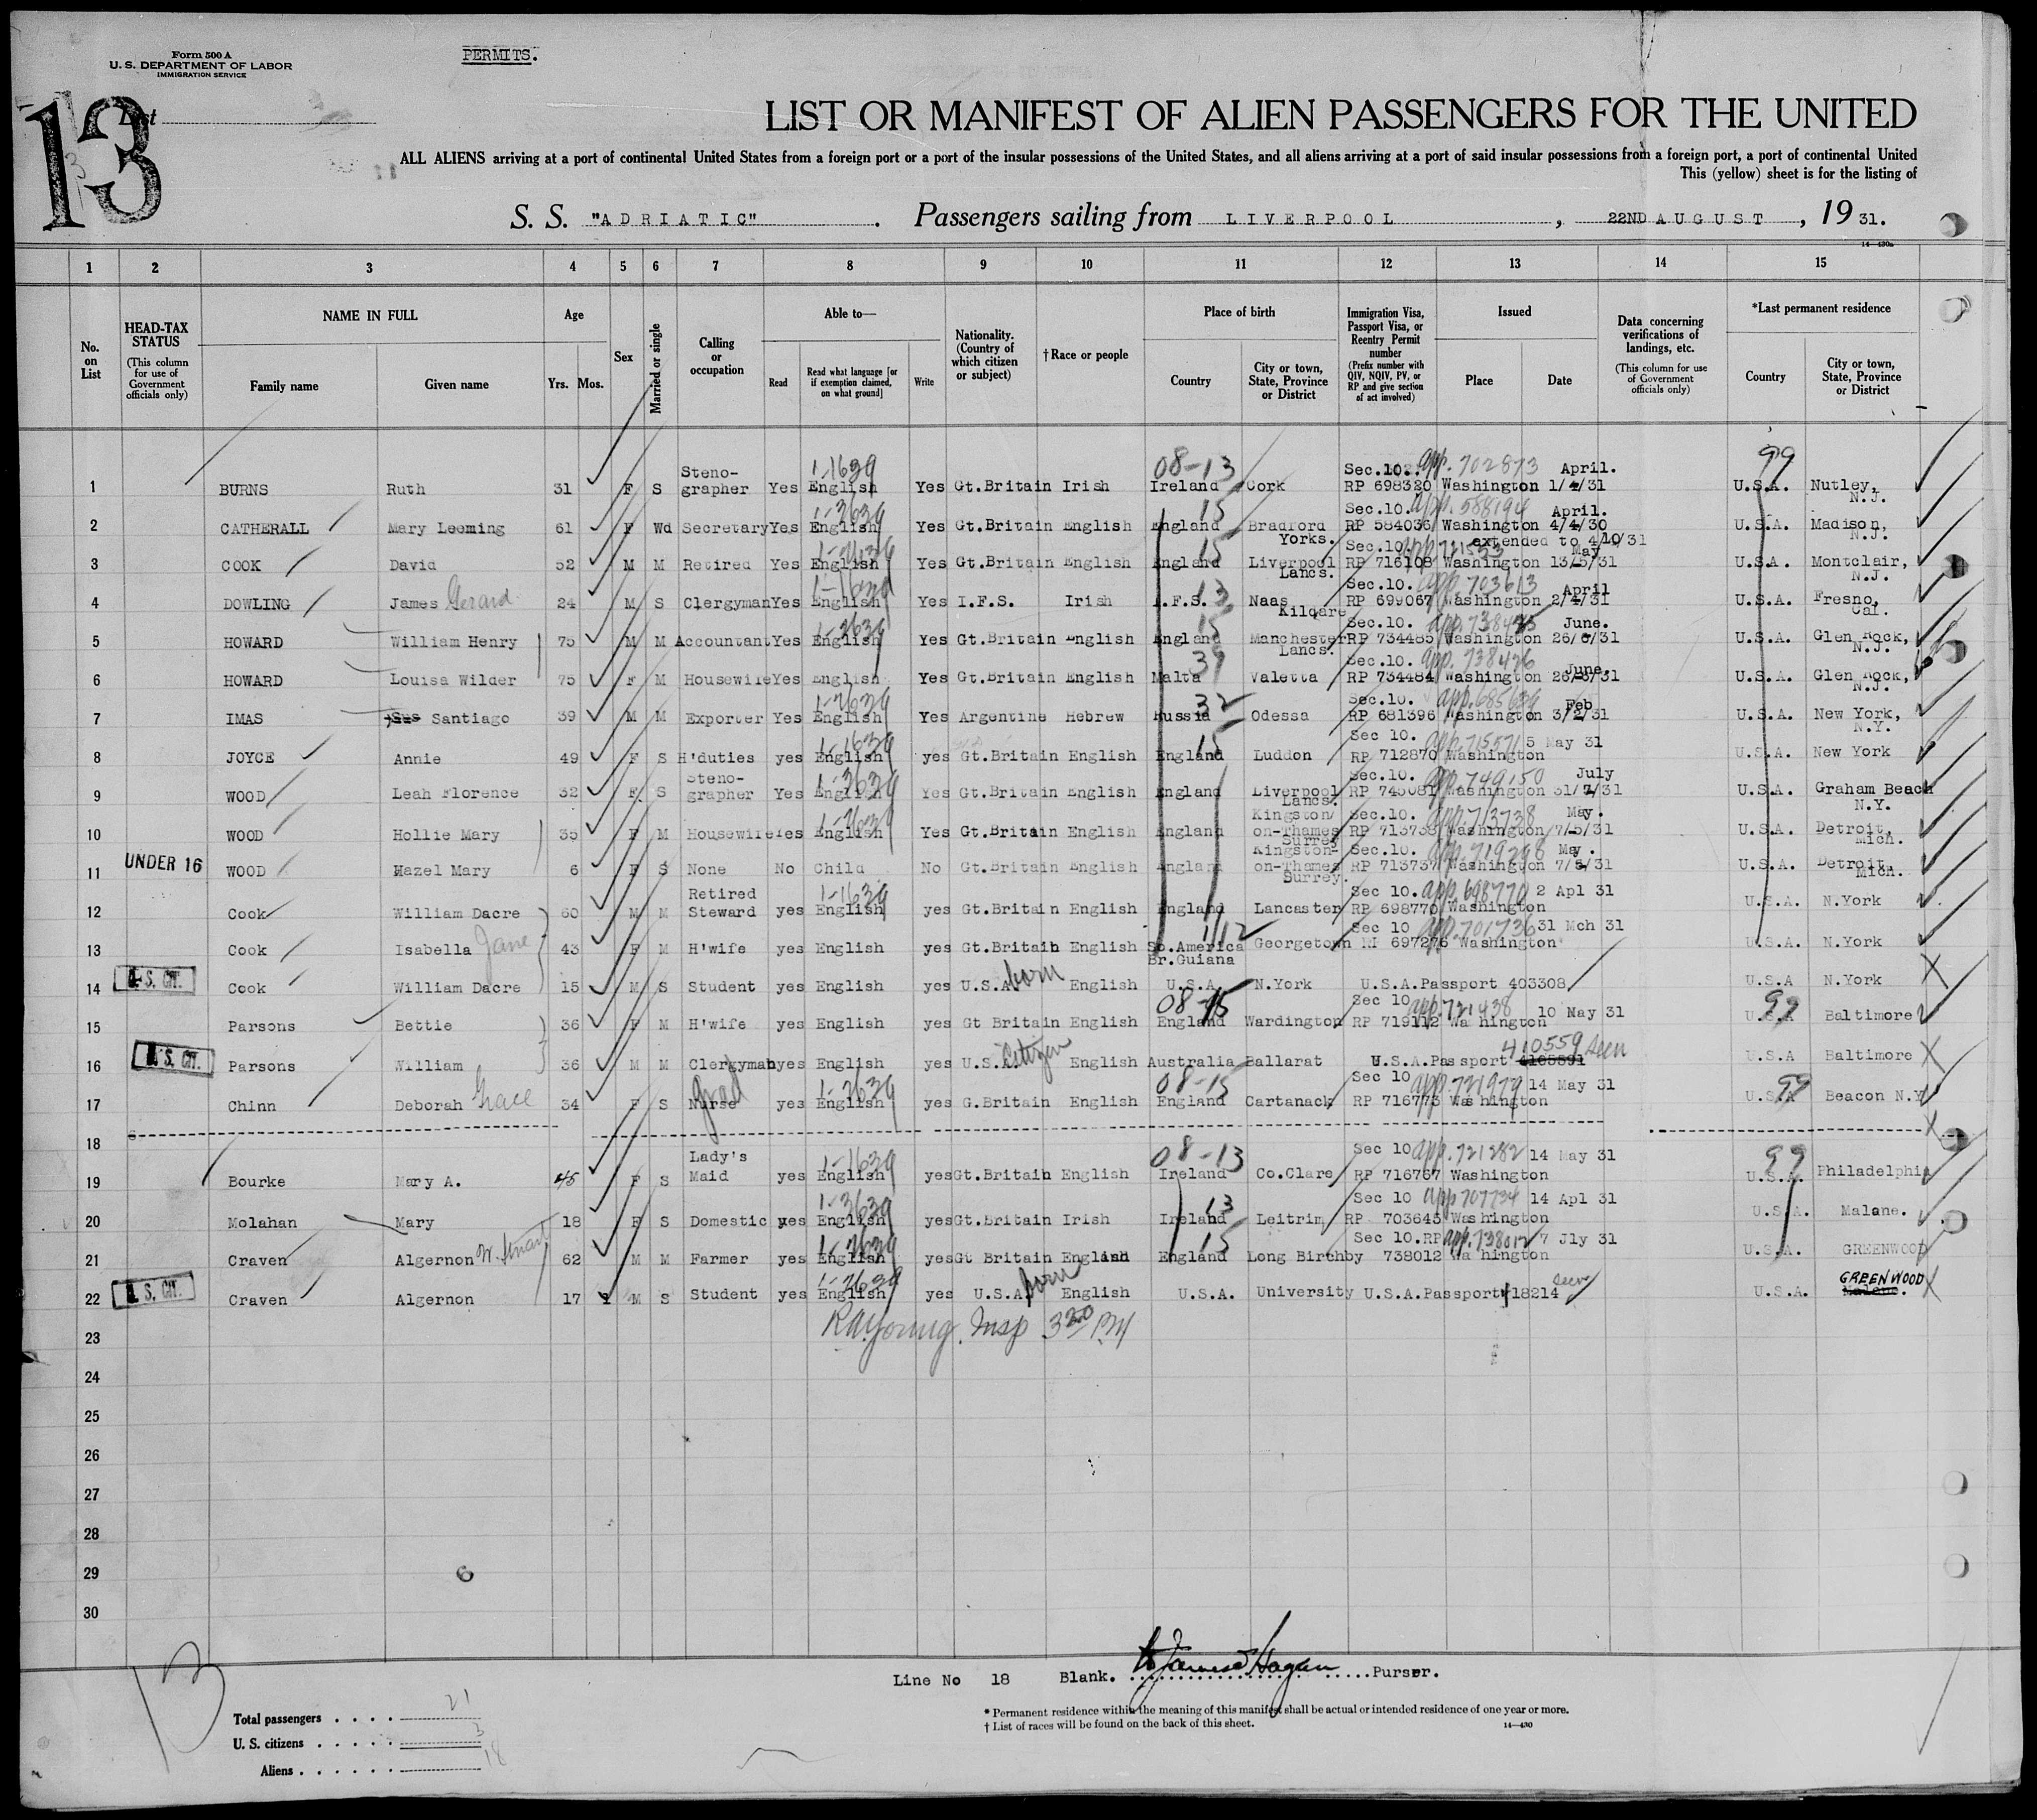 Form 500 A
U. S. DEPARTMENT OF LABOR
IMMIGRATION SERVICE
PERMITS.
13
List
LIST OR MANIFEST OF ALIEN PASSENGERS FOR THE UNITED
ALL ALIENS arriving at a port of continental United States from a foreign port or a port of the insular possessions of the United States, and all aliens arriving at a port of said insular possessions from a foreign port, a port of continental United
This (yellow) sheet is for the listing of
S. S. "ADRIATIC" . Passengers sailing from LIVERPOOL , 22ND AUGUST , 19 31.
14—430a
1 2 3 4 5 6 7 8 9 10 11 12 13 14 15
No. on List
HEAD-TAX STATUS (This column for use of Government officials only)
NAME IN FULL Family name Given name
Age Yrs. Mos.
Sex
Married or single
Calling or occupation
Able to— Read Read what language [or if exemption claimed, on what ground] Write
Nationality. (Country of which citizen or subject)
†Race or people
Place of birth Country City or town, State, Province or District
Immigration Visa, Passport Visa, or Reentry Permit number (Prefix number with QIV, NQIV, PV, or RP and give section of act involved)
Issued Place Date
Data concerning verifications of landings, etc. (This column for use of Government officials only)
*Last permanent residence Country City or town, State, Province or District
1 BURNS Ruth 31 F S Steno-grapher Yes English 1-1639 Yes Gt.Britain Irish 08-13 Ireland Cork Sec.10. app. 702873 RP 698320 Washington April. 1/4/31 99 U.S.A. Nutley, N.J.
2 CATHERALL Mary Leeming 61 F Wd Secretary Yes English 1-2639 Yes Gt.Britain English 15 England Bradford Yorks. Sec.10. app. 588194 RP 584036 Washington April. 4/4/30 extended to 4/10/31 U.S.A. Madison, N.J.
3 COOK David 52 M M Retired Yes English 1-2639 Yes Gt.Britain English 15 England Liverpool Lancs. Sec.10. RP 716108 Washington May 13/5/31 U.S.A. Montclair, N.J.
4 DOWLING James Gerard 24 M S Clergyman Yes English 1-1639 Yes I.F.S. Irish I.F.S. 13 Naas Kildare Sec.10. app. 703613 RP 699067 Washington April 2/4/31 U.S.A. Fresno, Cal.
5 HOWARD William Henry 75 M M Accountant Yes English 1-2639 Yes Gt.Britain English 15 England Manchester Lancs. Sec.10. app. RP 734485 Washington June. 26/6/31 U.S.A. Glen Rock, N.J.
6 HOWARD Louisa Wilder 75 F M Housewife Yes English Yes Gt.Britain English 39 Malta Valetta Sec.10. app. 738476 RP 734484 Washington June 26/6/31 U.S.A. Glen Rock, N.J.
7 IMAS Santiago 39 M M Exporter Yes English 1-2639 Yes Argentine Hebrew 32 Russia Odessa Sec.10. app. RP 681396 Washington Feb 3/2/31 U.S.A. New York, N.Y.
8 JOYCE Annie 49 F S H'duties yes English 1-1639 yes Gt.Britain English 15 England Luddon Sec 10. app. 715571 RP 712870 Washington 5 May 31 U.S.A. New York
9 WOOD Leah Florence 32 F S Steno-grapher Yes English 1-2639 Yes Gt.Britain English England Liverpool Lancs. Sec.10. app. 749150 RP 745081 Washington July 31/7/31 U.S.A. Graham Beach N.Y.
10 WOOD Hollie Mary 35 F M Housewife Yes English 1-2639 Yes Gt.Britain English England Kingston-on-Thames Surrey Sec.10. app. 713738 RP 713738 Washington May. 7/5/31 U.S.A. Detroit, Mich.
UNDER 16
11 WOOD Hazel Mary 6 F S None No Child No Gt.Britain English England Kingston-on-Thames Surrey. Sec.10. app. 719298 RP 713737 Washington May. 7/5/31 U.S.A. Detroit, Mich.
12 Cook William Dacre 60 M M Retired Steward yes English 1-1639 yes Gt.Britain English England Lancaster Sec 10. app. 698770 RP 698770 Washington 2 Apl 31 U.S.A. N.York
13 Cook Isabella Jane 43 F M H'wife yes English yes Gt.Britain English 1/12 So.America Br.Guiana Georgetown Sec 10 app. 701736 697276 Washington 31 Mch 31 U.S.A. N.York
U. S. CIT.
14 Cook William Dacre 15 M S Student yes English yes U.S.A. born English U.S.A. N.York U.S.A.Passport 403308 U.S.A N.York
15 Parsons Bettie 36 F M H'wife yes English yes Gt Britain English 08-15 England Wardington Sec 10 app. 721438 RP 719112 Wa hington 10 May 31 99 U.S.A Baltimore
U. S. CIT.
16 Parsons William 36 M M Clergyman yes English yes U.S.A. Citizen English Australia Ballarat U.S.A.Passport 410559 Seen U.S.A Baltimore
17 Chinn Deborah Grace 34 F S Nurse Grad yes English 1-2639 yes G.Britain English 08-15 England Cartanack Sec 10 app. 721979 RP 716773 Washington 14 May 31 99 U.S.A Beacon N.Y
18
19 Bourke Mary A. 45 F S Lady's Maid yes English 1-1639 yes Gt.Britain English 08-13 Ireland Co.Clare Sec 10 app. 721282 RP 716767 Washington 14 May 31 99 U.S.A. Philadelphia
20 Molahan Mary 18 F S Domestic yes English 1-2639 yes Gt.Britain Irish 13 Ireland Leitrim Sec 10 app 707734 RP 703645 Washington 14 Apl 31 U.S.A. Malane.
21 Craven Algernon W. Stuart 62 M M Farmer yes English 1-2639 yes Gt Britain English 15 England Long Birthby Sec 10.RP app. 738012 738012 Wa hington 7 Jly 31 U.S.A. GREENWOOD
U. S. CIT.
22 Craven Algernon 17 M S Student yes English 1-2639 yes U.S.A. born English U.S.A. University U.S.A.Passport 418214 Seen U.S.A. GREENWOOD Malane.
23 Insp 3 20 PM
24
25
26
27
28
29
30
Line No 18 Blank. Purser.
13
Total passengers . . . . 21
U. S. citizens . . . . . 3
Aliens . . . . . . 18
* Permanent residence within the meaning of this manifest shall be actual or intended residence of one year or more.
† List of races will be found on the back of this sheet. 14—430